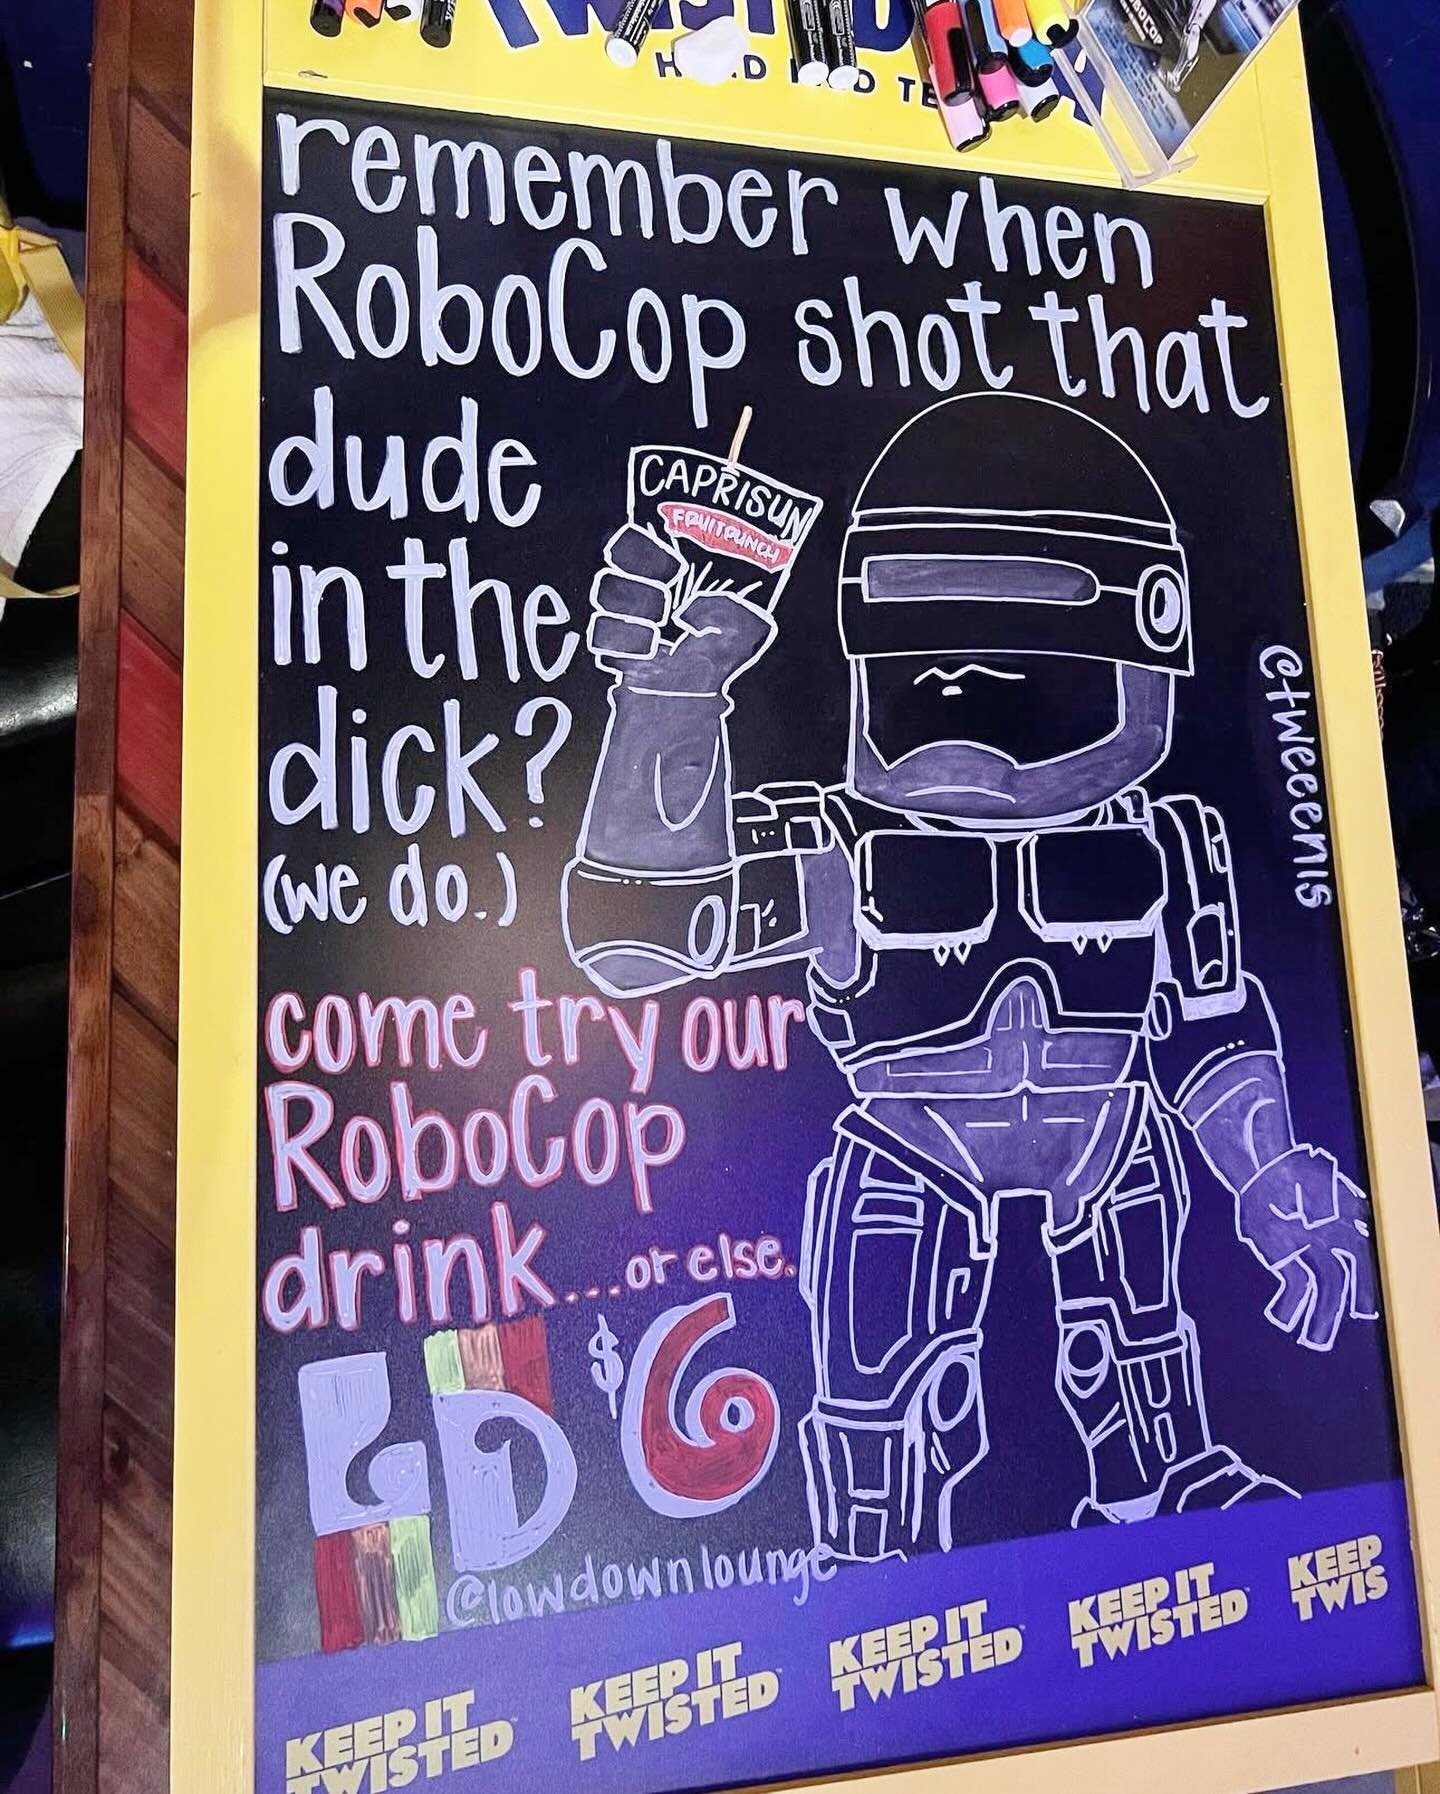 remember when
RoboCop shot that
dude
in the
dick?
(we do.)
CAPRISUN
FRUIT PUNCH
come try our
RoboCop
drink....or else.
$6
LD
@lowdownlounge
@tweeenis
KEEP IT
TWISTED
KEEP IT
TWISTED
KEEP IT
TWISTED
KEEP IT
TWISTED
KEEP
TWIS